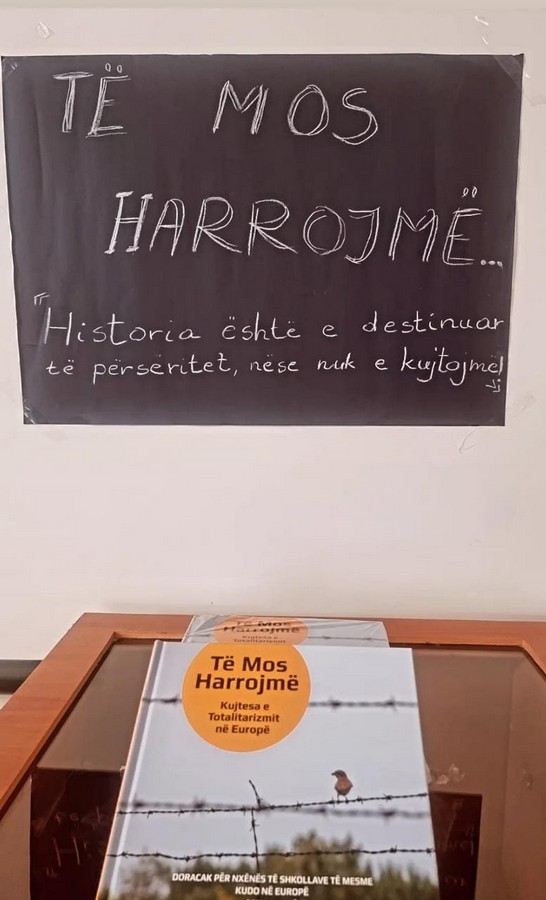 TË MOS
HARROJMË...
"Historia është e destinuar
të përsëritet, nëse nuk e kujtojmë!"
Të Mos
Harrojmë
Kujtesa e
Totalitarizmit
Të Mos
Harrojmë
Kujtesa e
Totalitarizmit
në Europë
DORACAK PËR NXËNËS TË SHKOLLAVE TË MESME
KUDO NË EUROPË